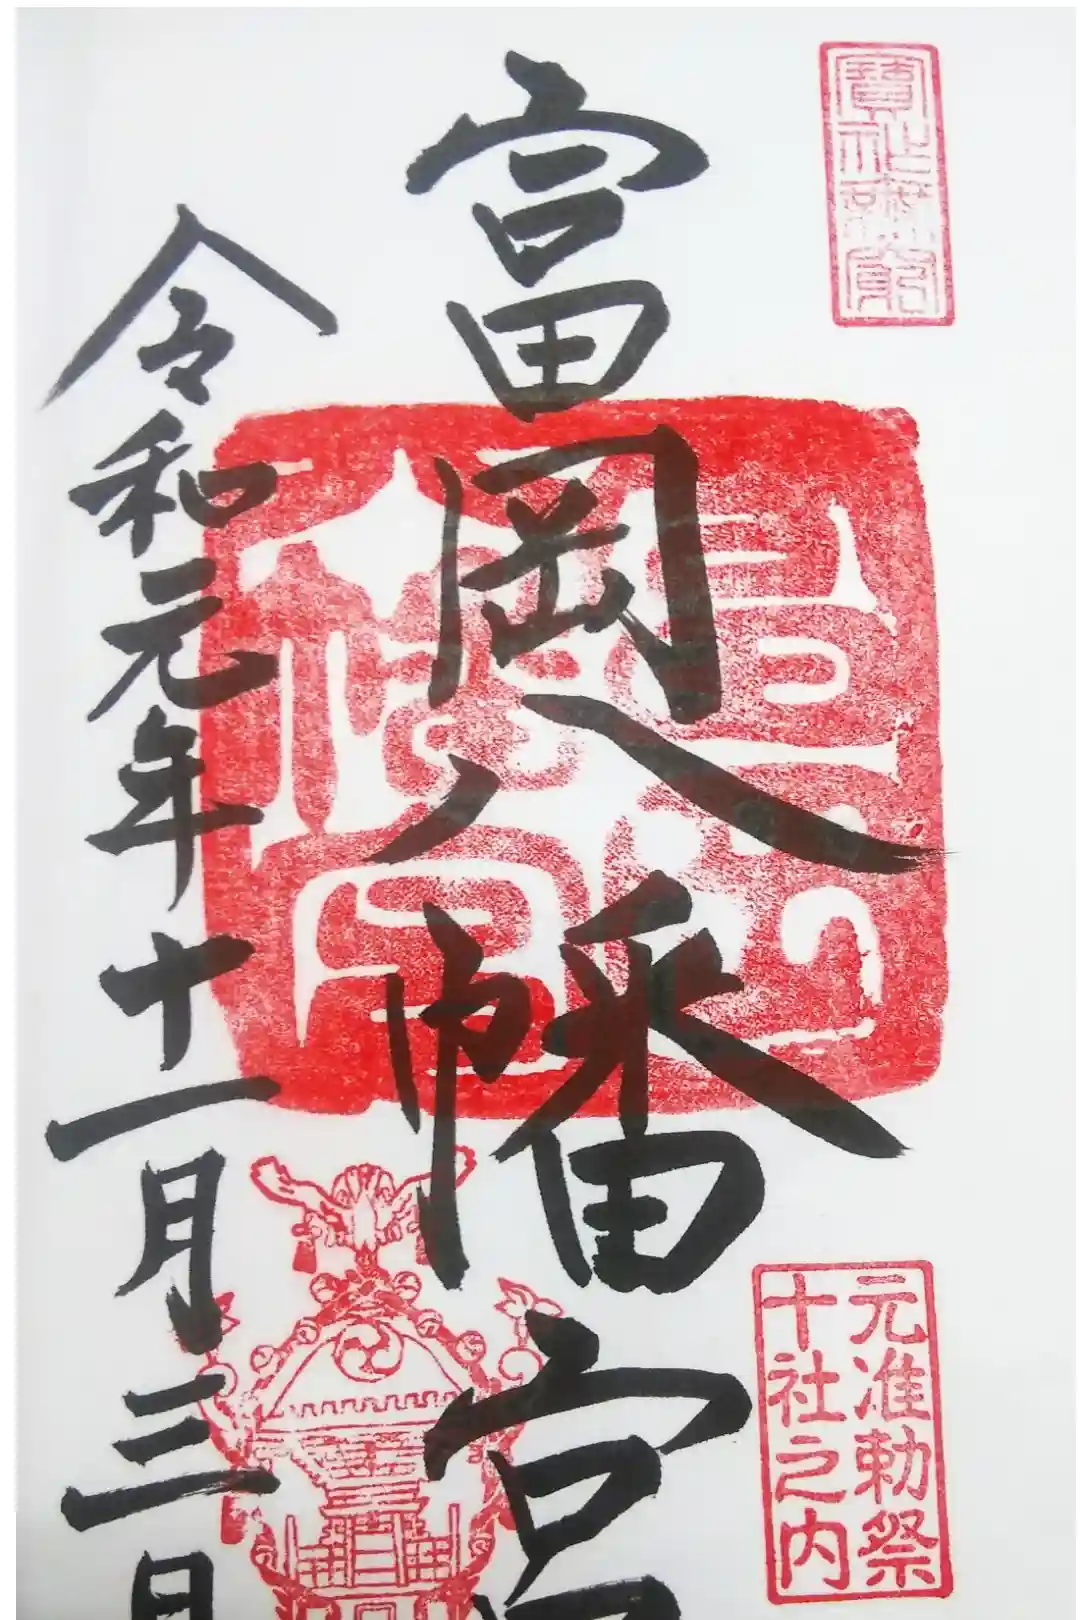 富岡八幡宮
令和元年十一月三日
元准勅祭
十社之内